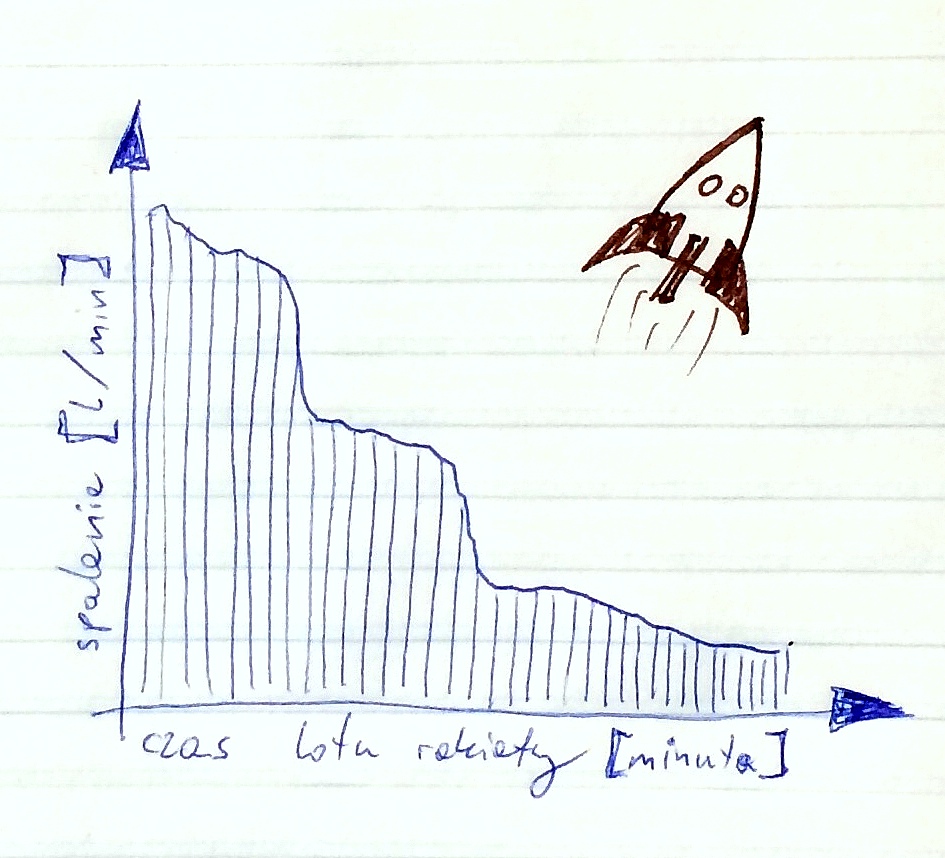 spalenie [l/min]
czas lotu rakiety [minuta]